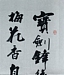 寶劍鋒從
梅花香自